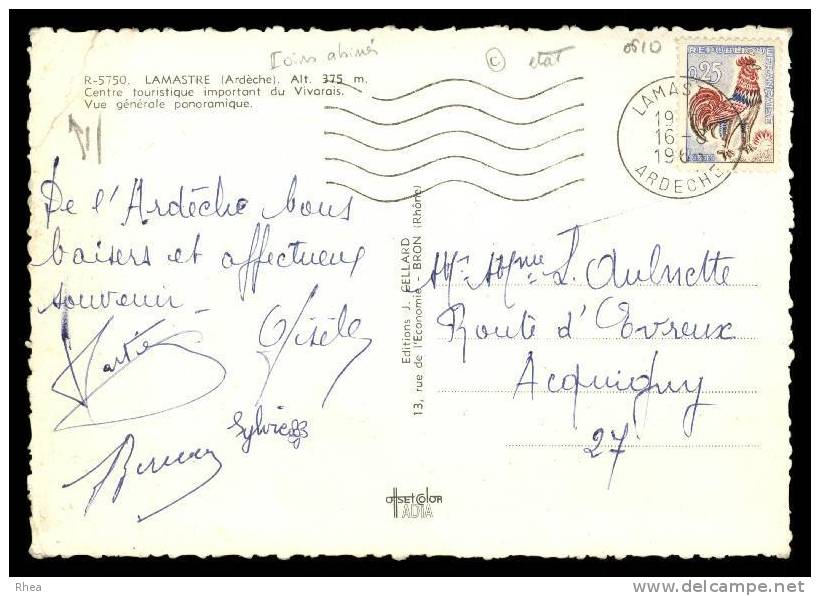 Coins abimés
© etat
0510
R-5750. LAMASTRE (Ardèche). Alt. 375 m.
Centre touristique important du Vivarais.
Vue générale panoramique.
REPUBLIQUE FRANÇAISE
0,25
LAMAS
19
16-
196
ARDECHE
De l'Ardèche bons
baisers et affectueux
souvenir
Gisèle
Sylvie
Editions J. CELLARD
13, rue de l'Economie - BRON (Rhône)
Mr. Mme L. Aulnette
Route d'Evreux
Acquigny
27
OFFSETCOLOR
IADIA
Rhea
delcampe.net